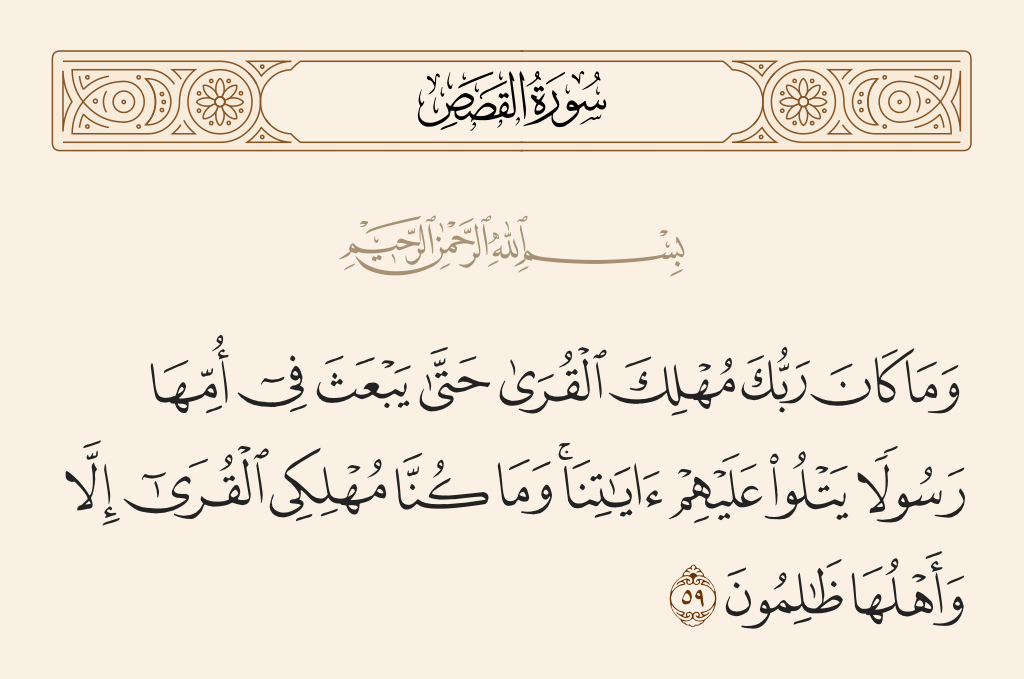 سُورَةُ القَصَصِ
بِسْمِ ٱللَّهِ ٱلرَّحْمَٰنِ ٱلرَّحِيمِ
وَمَا كَانَ رَبُّكَ مُهْلِكَ ٱلْقُرَىٰ حَتَّىٰ يَبْعَثَ فِىٓ أُمِّهَا
رَسُولًا يَتْلُوا۟ عَلَيْهِمْ ءَايَٰتِنَا ۚ وَمَا كُنَّا مُهْلِكِى ٱلْقُرَىٰٓ إِلَّا
وَأَهْلُهَا ظَٰلِمُونَ ٥٩